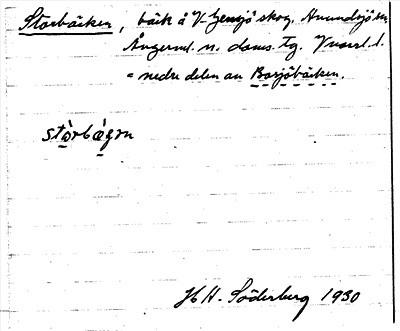 Storbäcken, bäck å V-Gensjö skog, Anundsjö sn,
Ångerml. n. doms. tg. Vnorrl. l.
= nedre delen av Borsjöbäcken.
stòrbæ̀gɛn
H H. Söderberg 1930